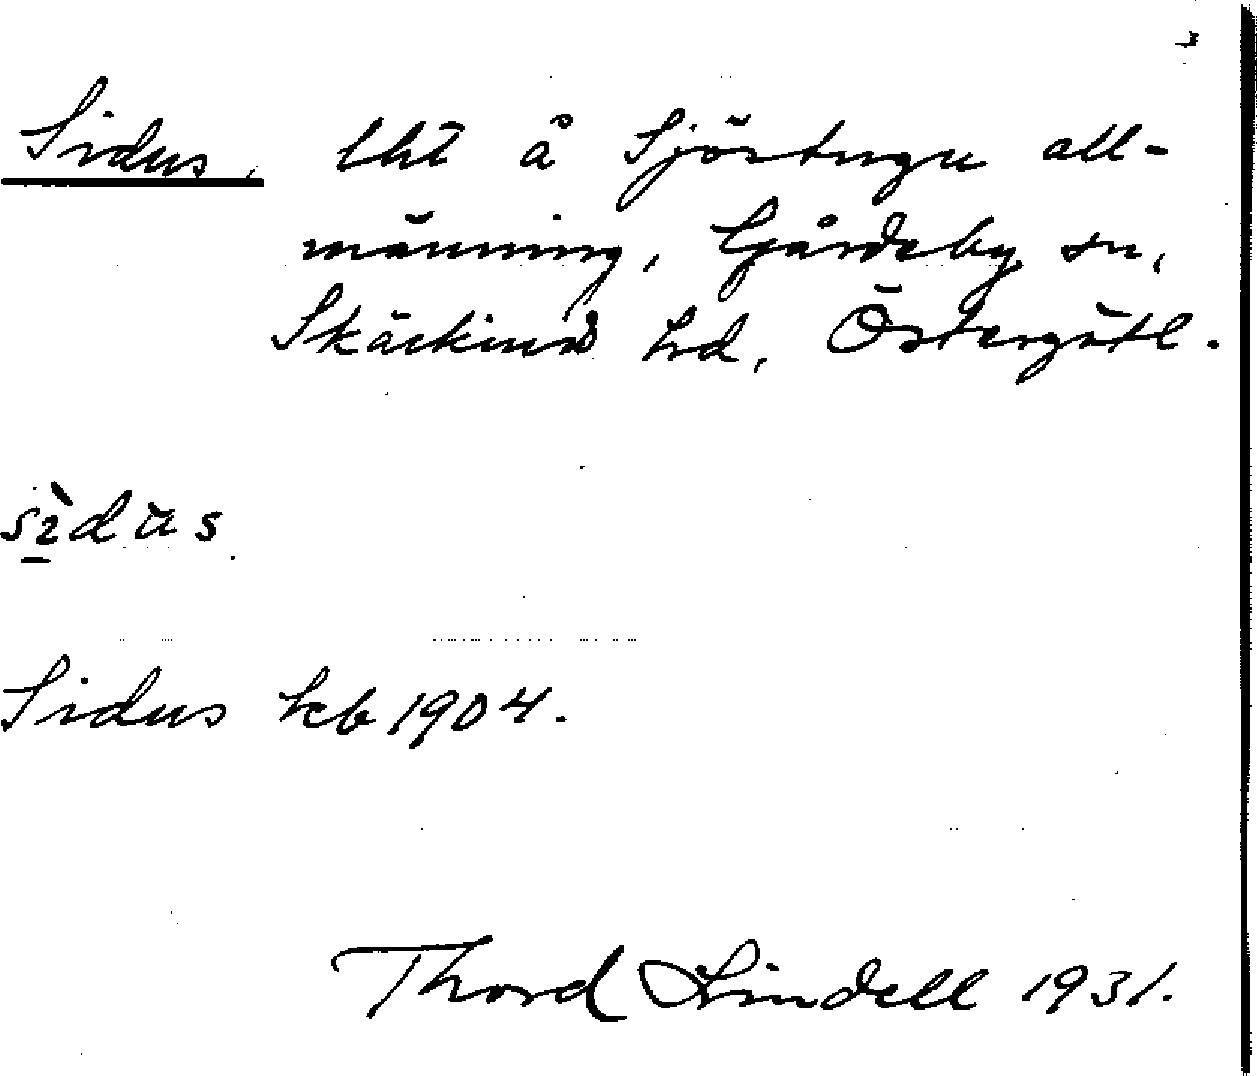 Sidus, lht å Sjörtugu all-
männing, Gårdeby sn,
Skärkind hd, Östergötl.
sìdus
Sidus kb 1904.
Thord Lindell 1931.